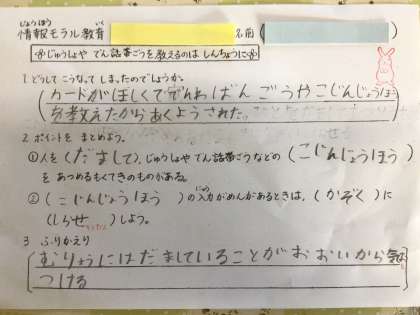 じょうほう いく
情報モラル教育 名前(
じゅうしょや でん話番ごうを教えるのは しんちょうに
1 どうしてこうなってしまったのでしょうか。
(カードがほしくてでんわばんごうやこじんじょうほう
を教えたからあくようされた。
2 ポイントを まとめよう。
①人を(だまして)、じゅうしょや でん話番ごうなどの(こじんじょうほう)
をあつめるもくてきのものがある。
にゅう
②(こじんじょうほう)の入力がめんがあるときは、(かぞく)に
(しらせ)しよう。
3 ふりかえり
むりょうにはだましていることがおおいから気を
つける